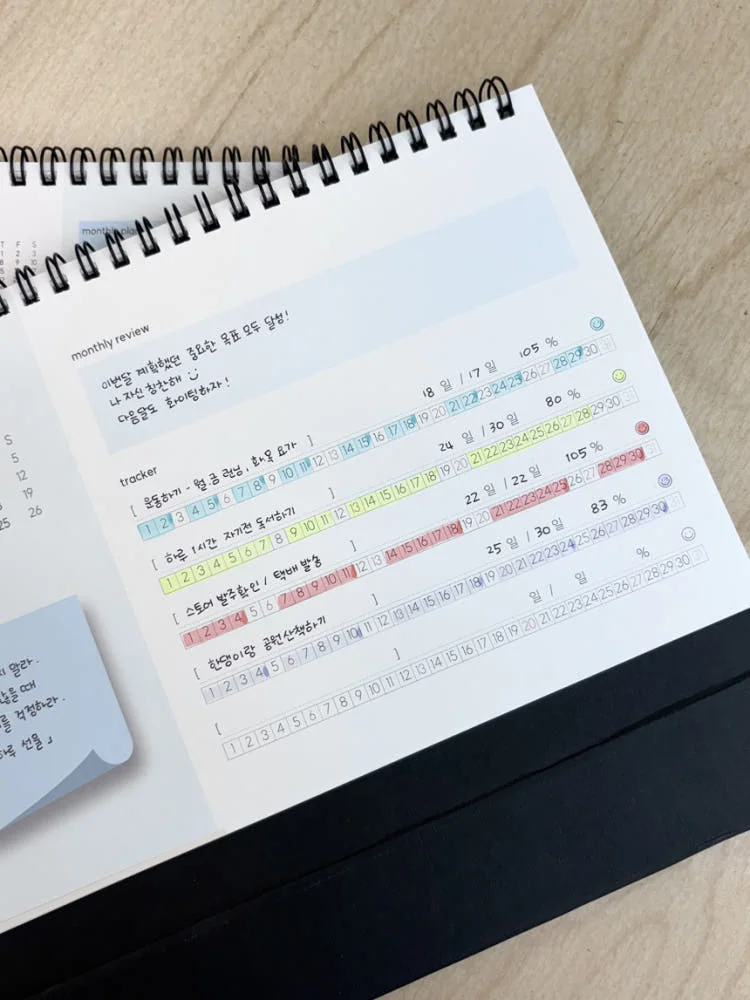 monthly plan
T F S
1 2 3
8 9 10
monthly review
이번달 계획했던 중요한 목표 모두 달성!
나 자신 칭찬해
다음달도 화이팅하자!
S
5
12
19
25 26
tracker
[ 운동하기 - 월.금 런닝, 화목 요가 ] 18 일 / 17 일 105 %
1 2 3 4 5 6 7 8 9 10 11 12 13 14 15 16 17 18 19 20 21 22 23 24 25 26 27 28 29 30 31
[ 하루 1시간 자기전 독서하기 ] 24 일 / 30 일 80 %
1 2 3 4 5 6 7 8 9 10 11 12 13 14 15 16 17 18 19 20 21 22 23 24 25 26 27 28 29 30 31
[ 스토어 발주확인 / 택배 발송 ] 22 일 / 22 일 105 %
1 2 3 4 5 6 7 8 9 10 11 12 13 14 15 16 17 18 19 20 21 22 23 24 25 26 27 28 29 30 31
[ 한댕이랑 공원산책하기 ] 25 일 / 30 일 83 %
1 2 3 4 5 6 7 8 9 10 11 12 13 14 15 16 17 18 19 20 21 22 23 24 25 26 27 28 29 30 31
[ ] 일 / 일 %
1 2 3 4 5 6 7 8 9 10 11 12 13 14 15 16 17 18 19 20 21 22 23 24 25 26 27 28 29 30 31
말라.
때
걱정하라.
하루 선물 」